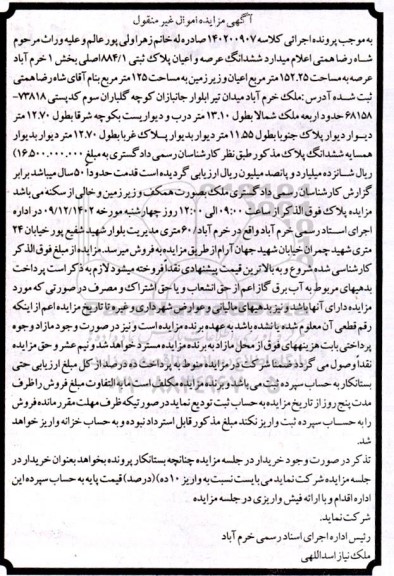 آگهی مزایده اموال غیر منقول
به موجب پرونده اجرائی کلاسه ۱۴۰۲۰۰۹۰۷ صادره له خانم زهرا ولی پور عالم و علیه وراث مرحوم
شاه رضا همتی اعلام میدارد ششدانگ عرصه و اعیان پلاک ثبتی ۸۸۴/۱ اصلی بخش ۱ خرم آباد
عرصه به مساحت ۱۵۲.۲۵ متر مربع اعیان و زیر زمین به مساحت ۱۲۵ متر مربع بنام آقای شاه رضا همتی
ثبت شده آدرس: ملک خرم آباد میدان تیر بلوار جانبازان کوچه گلباران سوم کدپستی ۷۳۸۱۸-
۶۸۱۵۸ حدود اربعه ملک شمالا بطول ۱۳.۱۰ متر درب و دیواریست بکوچه شرقا بطول ۱۲.۷۰ متر
دیوار دیوار پلاک جنوبا بطول ۱۱.۵۵ متر دیوار بدیوار پلاک غربا بطول ۱۲.۷۰ متر دیوار بدیوار
همسایه ششدانگ پلاک مذکور طبق نظر کارشناسان رسمی دادگستری به مبلغ (۱۶.۵۰۰.۰۰۰.۰۰۰)
ریال شانزده میلیارد و پانصد میلیون ریال ارزیابی گردیده است قدمت حدودا ۵۰ سال میباشد برابر
گزارش کارشناسان رسمی دادگستری ملک بصورت همکف و زیر زمین و خالی از سکنه می باشد
مزایده پلاک فوق الذکر از ساعت ۰۹:۰۰ الی ۱۲:۰۰ روز چهارشنبه مورخه ۰۹/۱۲/۱۴۰۲ در اداره
اجرای اسناد رسمی خرم آباد واقع در خرم آباد ۶۰ متری مدیریت بلوار شهید شفیع پور خیابان ۲۴
متری شهید چمران خیابان شهید جهان آرام از طریق مزایده به فروش میرسد. مزایده از مبلغ فوق الذکر
کارشناسی شده شروع و به بالاترین قیمت پیشنهادی نقدا فروخته میشود لازم به ذکر است پرداخت
بدهیهای مربوط به آب برق گاز اعم از حق انشعاب و یا حق اشتراک و مصرف در صورتی که مورد
مزایده دارای آنها باشد و نیز بدهیهای مالیاتی و عوارض شهرداری و غیره تا تاریخ مزایده اعم از اینکه
رقم قطعی آن معلوم شده یا نشده باشد به عهده برنده مزایده است و نیز در صورت وجود مازاد وجوه
پرداختی بابت هزینه های فوق از محل مازاد به برنده مزایده مسترد خواهد شد و نیم عشر و حق مزایده
نقدا وصول می گردد ضمنا شرکت در مزایده منوط به پرداخت ده درصد از کل مبلغ ارزیابی حتی
بستانکار به حساب سپرده ثبت می باشد و برنده مزایده مکلف است مابه التفاوت مبلغ فروش را ظرف
مدت پنج روز از تاریخ مزایده به حساب ثبت تودیع نماید در صورتیکه ظرف مهلت مقرر مانده فروش
را به حساب سپرده ثبت واریز نکند مبلغ مذکور قابل استرداد نبوده و به حساب خزانه واریز خواهد
شد.
تذکر در صورت وجود خریدار در جلسه مزایده چنانچه بستانکار پرونده بخواهد بعنوان خریدار در
جلسه مزایده شرکت نماید می بایست نسبت به واریز ۱۰ (ده درصد) قیمت پایه به حساب سپرده این
اداره اقدام و با ارائه فیش واریزی در جلسه مزایده
شرکت نماید.
رئیس اداره اجرای اسناد رسمی خرم آباد
ملک نیاز اسداللهی